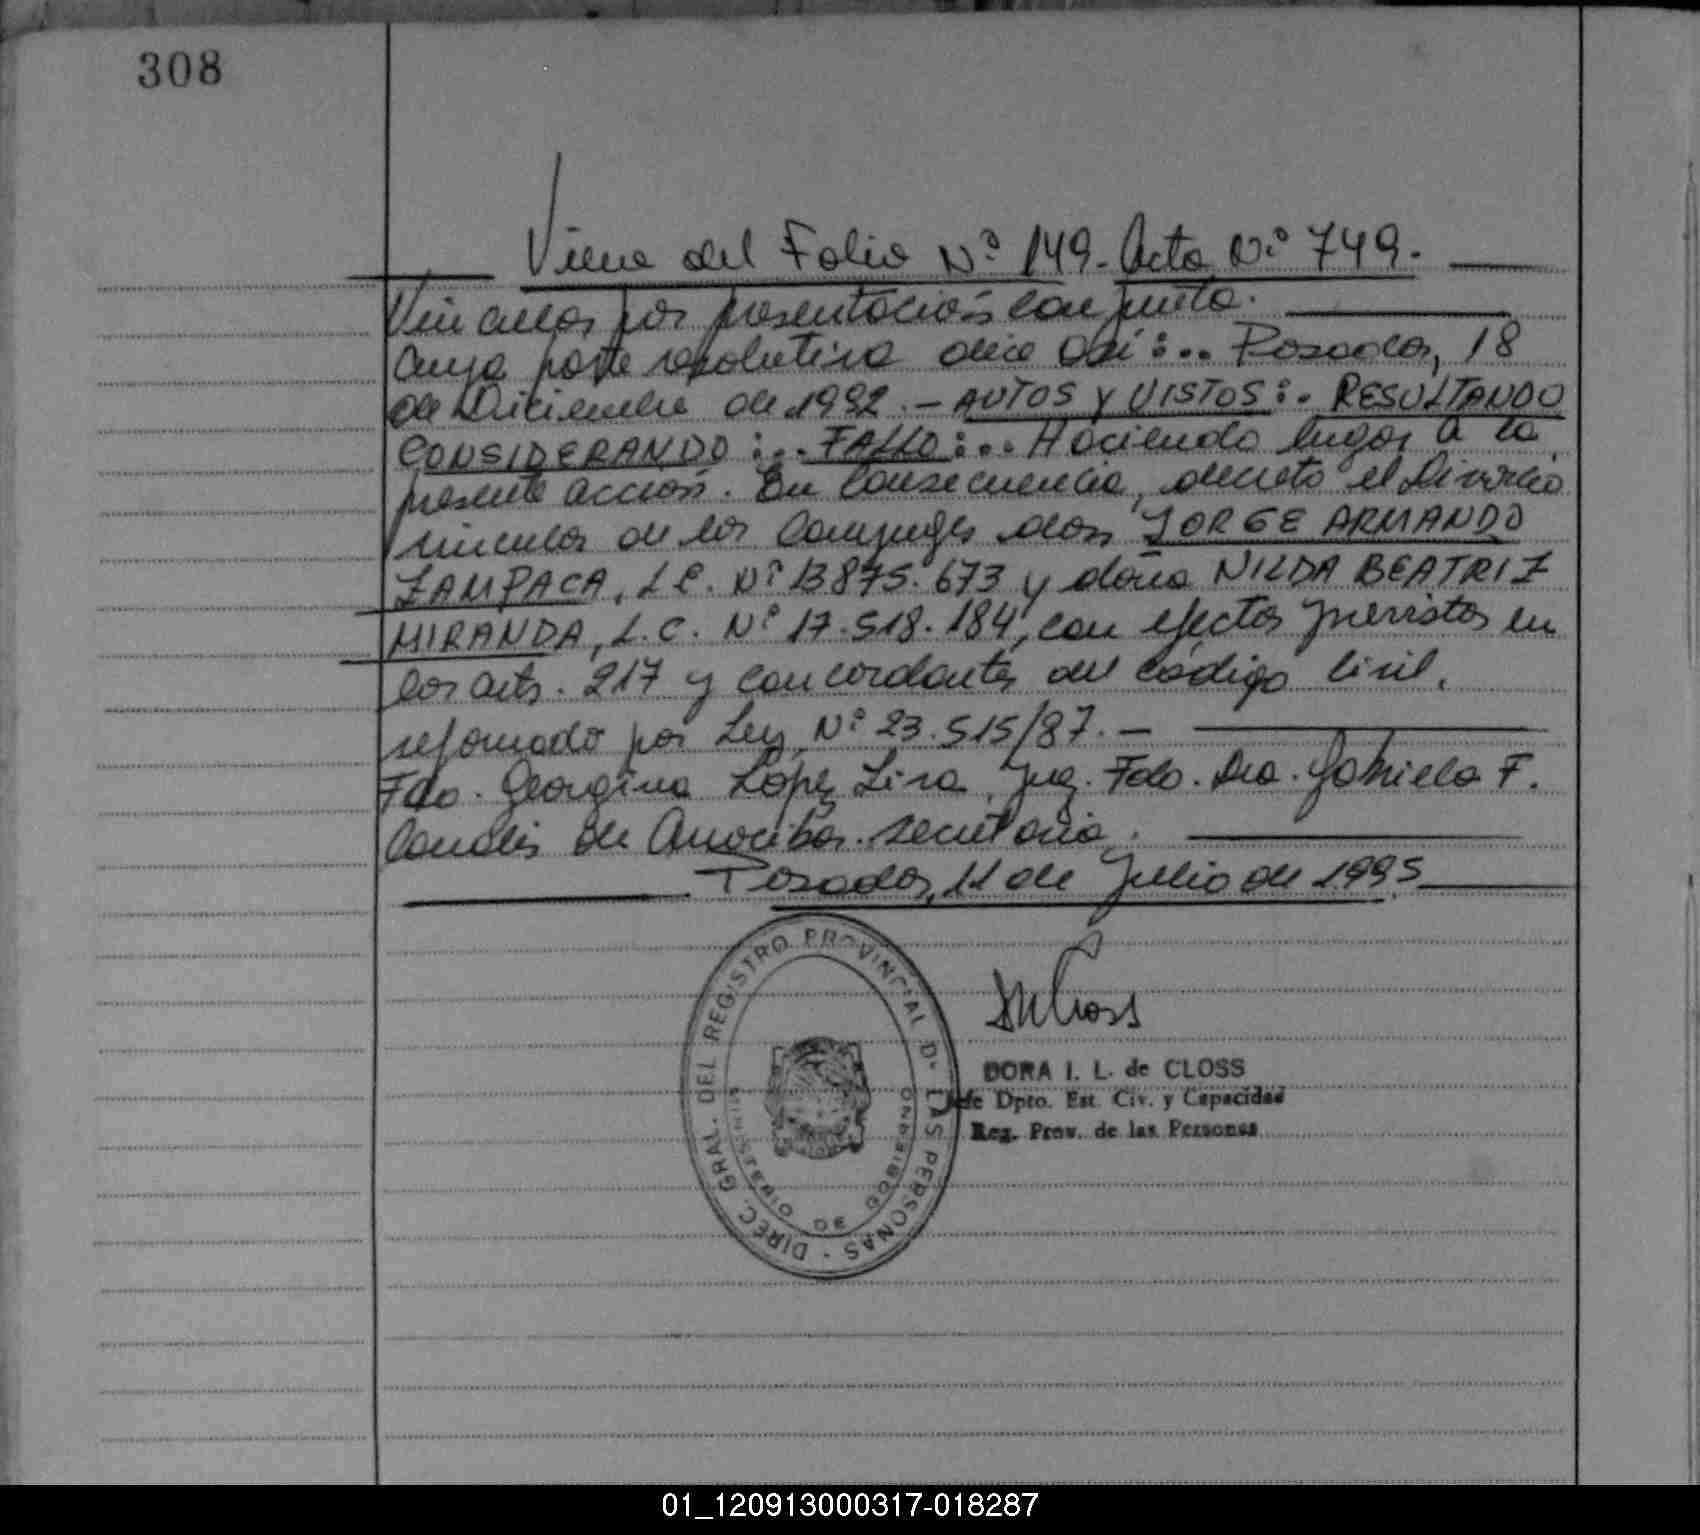 308
Viene del Folio Nº 149. Acta Nº 749.
Vincular por presentación conjunta.
Cuya parte resolutiva dice así:.. Posadas, 18
de Diciembre de 1992.- AUTOS Y VISTOS:. RESULTANDO
CONSIDERANDO:.. FALLO:.. Haciendo lugar a la
presente acción. En Consecuencia, decreto el Divorcio
vincular de los Conyuges don JORGE ARMANDO
ZAMPACA, L.E. Nº 13.875.673 y doña NILDA BEATRIZ
MIRANDA, L.C. Nº 17.518.184, con efectos previstos en
los arts. 217 y concordantes del Código Civil,
reformado por Ley Nº 23.515/87.-
Fdo. Georgina López Liva, Juez. Fdo. Dra. Gabriela F.
Canalis de secretaria.
Posadas, 11 de Julio de 1995
DIREC. GRAL. DEL REGISTRO PROVINCIAL DE LAS PERSONAS
MINISTERIO DE GOBIERNO
DORA I. L. de CLOSS
Jefe Dpto. Est. Civ. y Capacidad
Reg. Prov. de las Personas
01_120913000317-018287